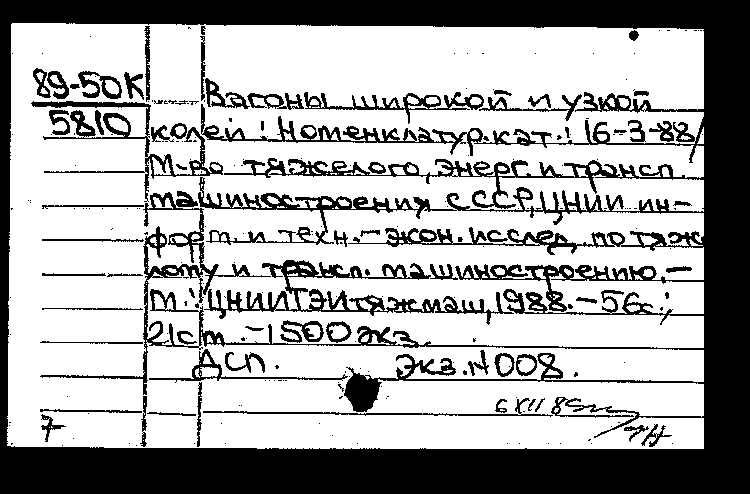 89-50К
5810
Вагоны широкой и узкой
колеи : Номенклатур. кат. : 16-3-88/
М-во тяжелого, энерг. и трансп.
машиностроения СССР, ЦНИИ ин-
форм. и техн.-экон. исслед. по тяже
лому и трансп. машиностроению. -
М. : ЦНИИТЭИтяжмаш, 1988. - 56с.;
21см. - 1500экз.
ДСП. Экз. N008.
6 XII 89
7